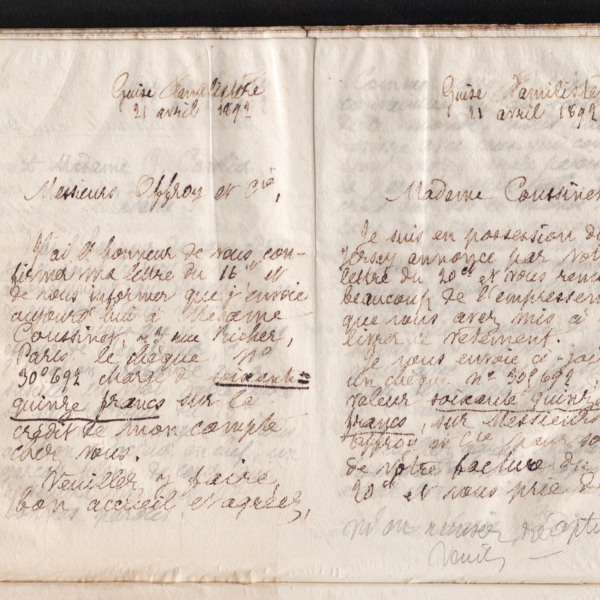 Guise Familistère
21 avril 1892
Messieurs Offroy et Cie,
J'ai l'honneur de vous con-
firmer ma lettre du 16 ct et
de vous informer que j'envoie
aujourd'hui à Madame
Coussinet, 43 rue Richer,
Paris le chèque No
30692 chargé de soixante =
quinze francs sur le
crédit de mon compte
chez vous.
Veuillez y faire
bon accueil et agréer,
Guise Familistè
21 avril 1892
Madame Coussinet
Je suis en possession du
jersey annoncé par votre
lettre du 20 ct et vous remer
beaucoup de l'empressem
que vous avez mis à
livrer ce vêtement.
Je vous envoie ci-joi
un chèque no 30692
valeur soixante quinze
francs, sur Messieurs
Offroy et Cie pour so
de votre facture du
20 ct et vous prie de
m'en